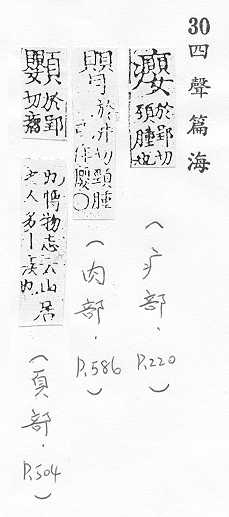 30
四聲篇海
癭 於郢切
頸腫也
(疒部．P.220)
於井切頸腫
亦作癭〇
(肉部．P.586)
於郢
切瘤
也博物志云山居
之人多丨
(頁部．P.504)